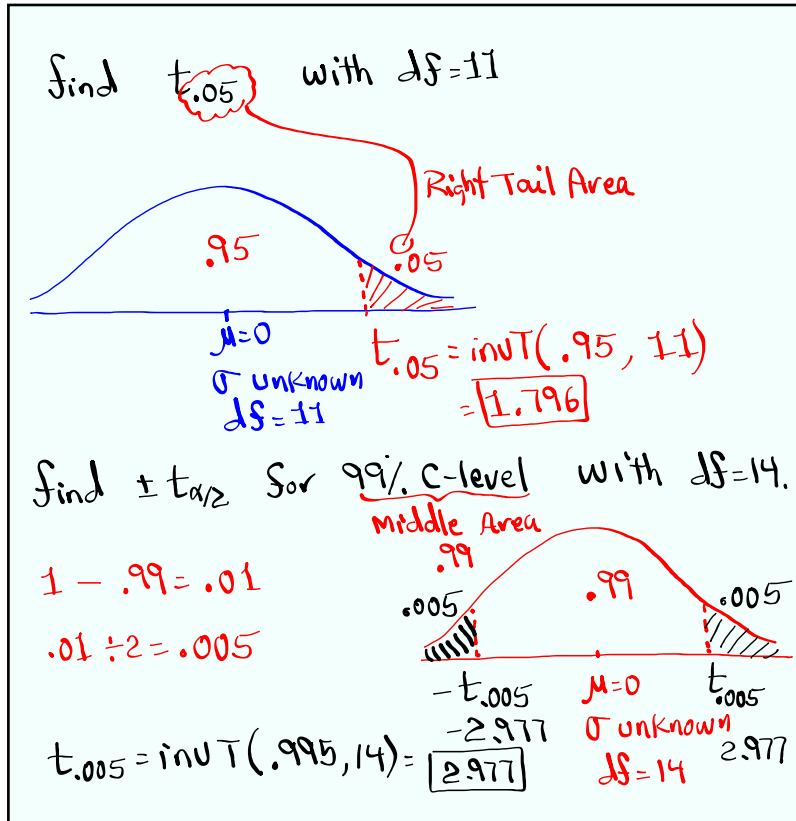 find t.05 with df=11
Right Tail Area
.95
.05
μ=0
σ unknown
df=11
t.05 = invT(.95, 11)
= 1.796
find ± tα/2 for 99% C-level with df=14.
Middle Area
.99
1 - .99 = .01
.01 ÷ 2 = .005
.005
.99
.005
-t.005
μ=0
t.005
-2.977
σ unknown
2.977
df=14
t.005 = invT(.995, 14) = 2.977